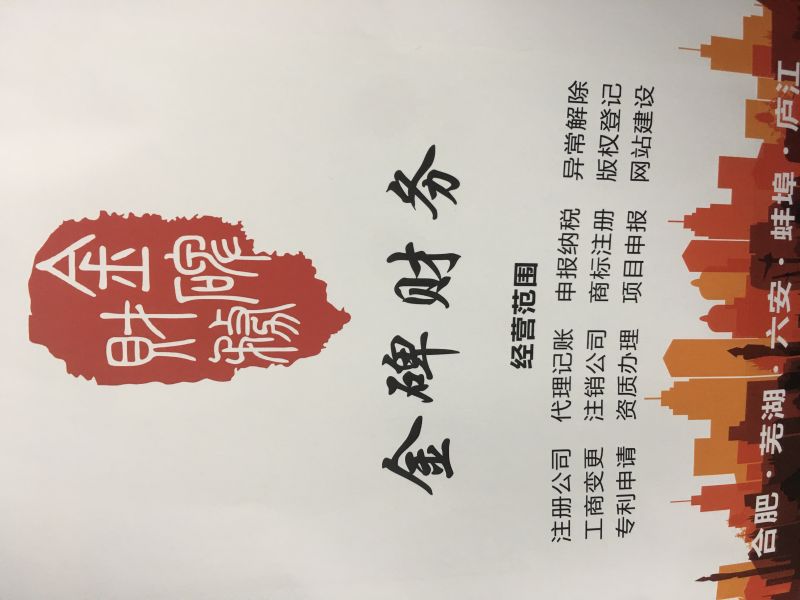 金碑
財務
金碑财务
经营范围
注册公司 代理记账 申报纳税 异常解除
工商变更 注销公司 商标注册 版权登记
专利申请 资质办理 项目申报 网站建设
合肥·芜湖·六安·蚌埠·庐江